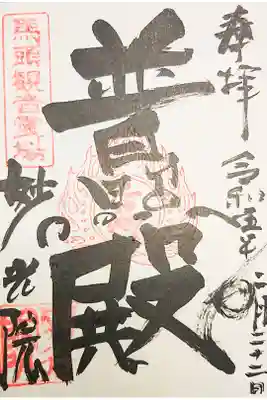 奉拝
令和五年
二月二十二日
普
殿
馬頭観音霊場
妙光院